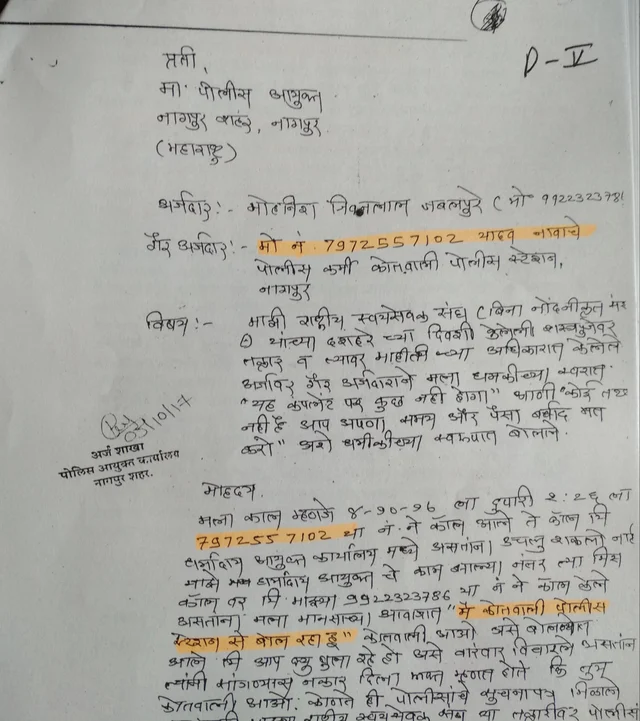 D-V
प्रती,
मा. पोलीस आयुक्त
नागपुर शहर, नागपुर.
(महाराष्ट्र)
अर्जदार :- मोहनिश जबलपुरे (मो
गैर अर्जदार :- मो नं. 7972557102 यादव नावाचे
पोलीस कर्मी कोतवाली पोलीस स्टेशन,
नागपुर
विषय :- माझी राष्ट्रीय स्वयंसेवक संघ (बिना नोंदनीकृत
यांच्या दशहरे च्या दिवशी केलेली शस्त्रपुजेवर
तक्रार व त्यावर माहीती च्या अधिकारात केलेले
अर्जावर गैर अर्जदाराने मला धमकीच्या स्वरात
"यह कंपलेंट पर कुछ नही होगा" आणी "कोई
नही है आप अपणा समय और पैसा बर्बाद मत
करो" असे धमकीच्या स्वरूपात बोलाने.
अर्ज शाखा
पोलिस आयुक्त कार्यालय
नागपूर शहर.
महोदय,
मला काल म्हणजे ला दुपारी २:२६ ला
7972557102 या नं. ने कॉल आले ते कॉल मि
आयुक्त कार्यालय मध्ये असतांना उचलु शकलो नाही
आयुक्त चे काम झाल्या नंतर त्या मिस
कॉल वर मि माझ्या 9922323786 या नं ने कॉल केले
असतांना मला आवाजात "मे कोतवाली पोलीस
स्टेशन से बोल रहा हू" कोतवाली आओ असे बोलण्यात
आले मि आप क्यु बुला रहे हो असे वारंवार विचारले असतांना
त्यांनी सांगण्यास नकार दिला म्हणत होते कि तुम
कोतवाली आओ. कोणते ही पोलीसांचे सुचनापत्र मिळाले